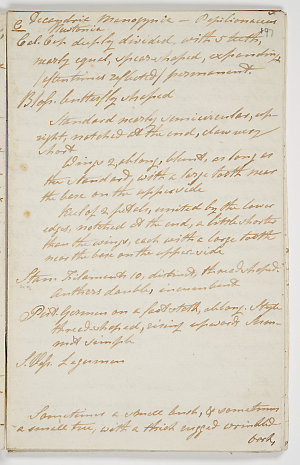 C Decandria Monogynia — Papilionaceous
197
Cal. Cup deeply divided, with 5 teeth,
nearly equal, spear-shaped, expanding,
sometimes reflected, permanent.
Bloss. butterfly shaped
Standard nearly semicircular, up-
right, notched at the end, claw very
short
Wings 2, oblong, blunt, as long as
the standard, with a large tooth near
the base on the upper side
Keel of 2 petals, united by the lower
edges, notched at the end, a little shorter
than the wings, each with a large tooth
near the base on the upper side
Stam. Filaments 10, distinct, thread shaped.
anthers double, incumbent
Pist. Germen on a foot stalk, oblong. Style
thread shaped, rising upwards. Sum-
mit simple
S. Vess. Legumen
Sometimes a small bush, & sometimes
a small tree, with a thick rugged wrinkled
bark,